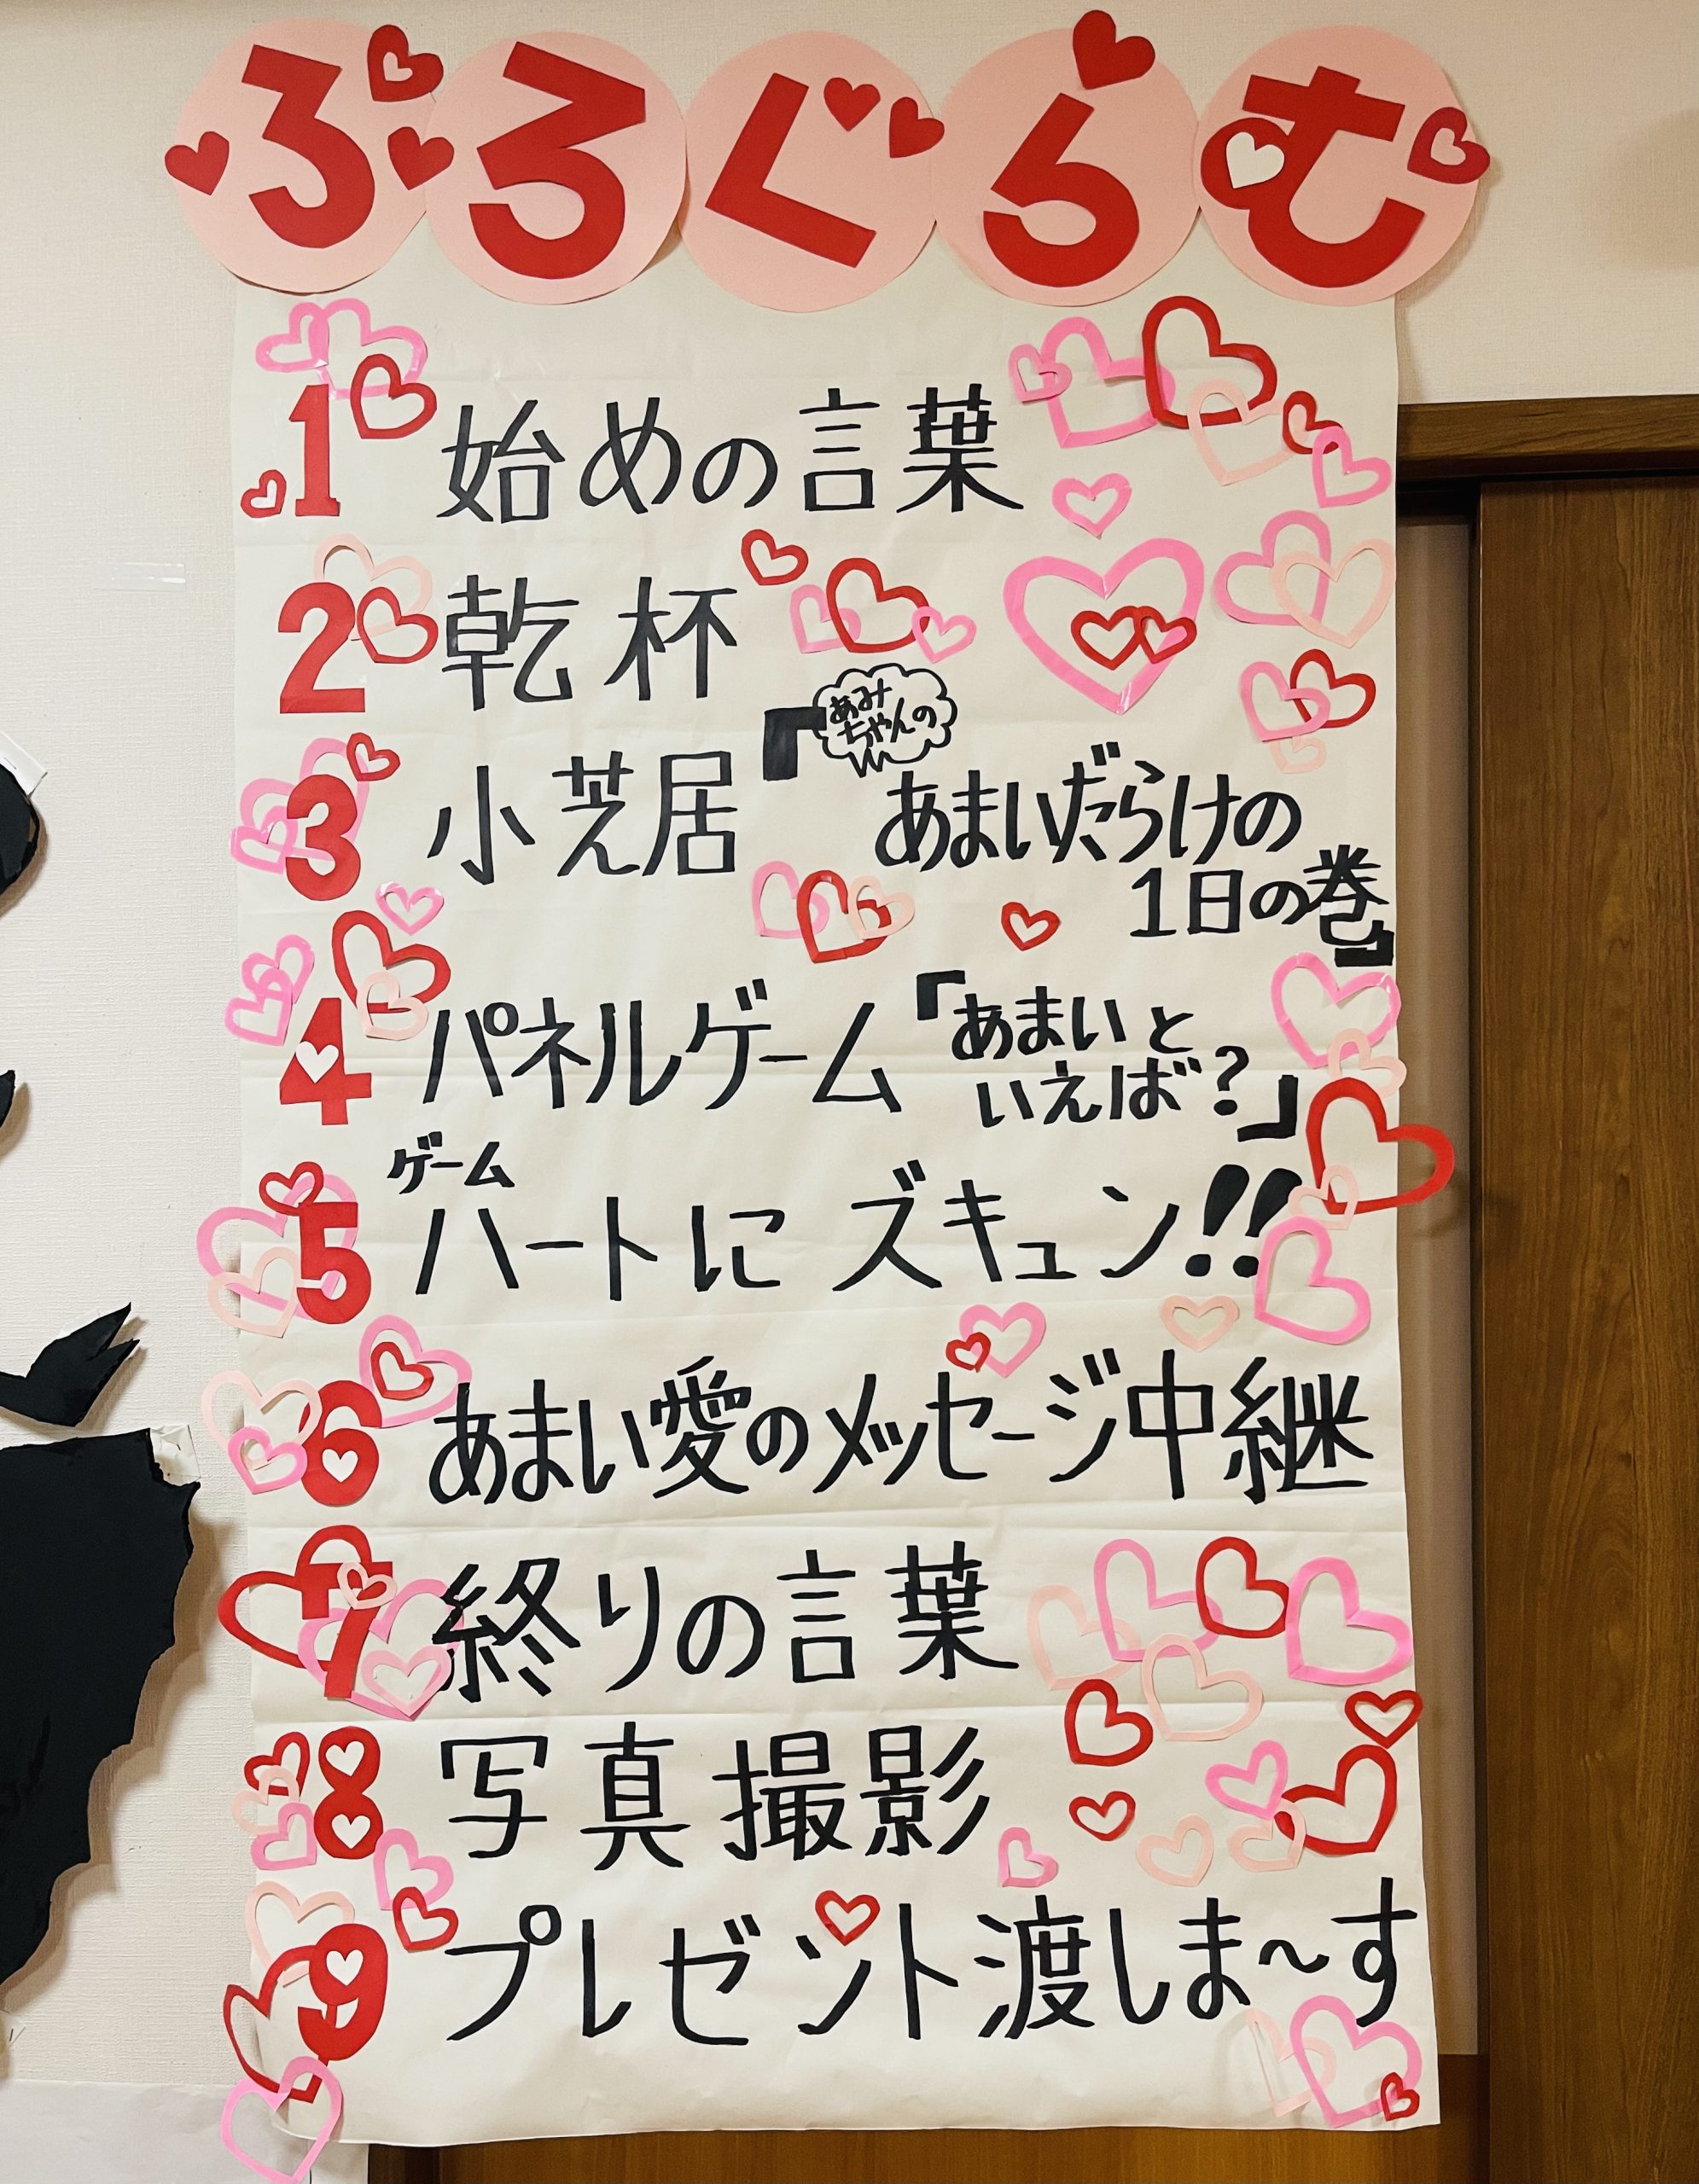 ぷろぐらむ
1 始めの言葉
2 乾杯
3 小芝居『あみちゃんの
あまいだらけの
1日の巻』
4 パネルゲーム『あまいと
いえば?』
ゲーム
5 ハートにズキュン!!
6 あまい愛のメッセージ中継
7 終りの言葉
8 写真撮影
9 プレゼント渡しま〜す